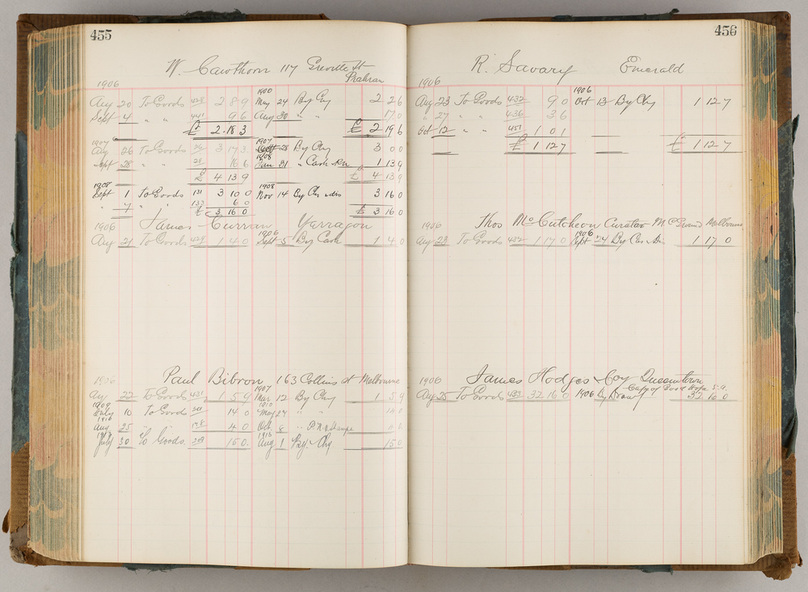 455
W. Cawthorn 117 Greville St
Prahran
1906
Aug 20 To Goods 2 8 9 May 24 By Chq 2 2 6
Sept 4 " " 9 6 Aug 17 0
£ 2 18 3 £ 2 19 6
1907
Aug 26 To Goods 3 17 3 28 By Chq 3 0 0
Sept 28 " " 16 6 21 " Cash 1 13 9
£ 4 13 9 £ 4 13 9
1908 1908
Sept 1 To Goods 131 3 10 0 Nov 14 By Chq 3 16 0
" 7 " 137 6 0
£ 3 16 0 £ 3 16 0
James Curran Yarragon
1906 1906
Aug 21 To Goods 1 4 0 Sept 5 By Cash 1 4 0
Paul Bibron 163 Collins St Melbourne
1906 1907
Aug 22 To Goods 1 5 9 Mar 12 By Chq 1 5 9
1909 1910
July 16 To Goods 14 0 May 14 0
1910
Aug 25 " 4 0 Oct 8 "
July 30 To Goods 15 0 Aug 1 By Chq 15 0
456
R. Savary Emerald
1906 1906
Aug 23 To Goods 432 9 0 Oct 13 By Chq 1 12 7
" 27 " " 436 3 6
Oct 12 " " 1 0 1
£ 1 12 7 £ 1 12 7
Thos McCutcheon Curator M C Ground Melbourne
1906 1906
Aug 23 To Goods 1 17 0 Sept 24 By 1 17 0
James Hodges & Coy Queenstown
1906 Cape of Good Hope S.A.
Aug 25 To Goods 32 16 0 1906 By Draft 32 16 0